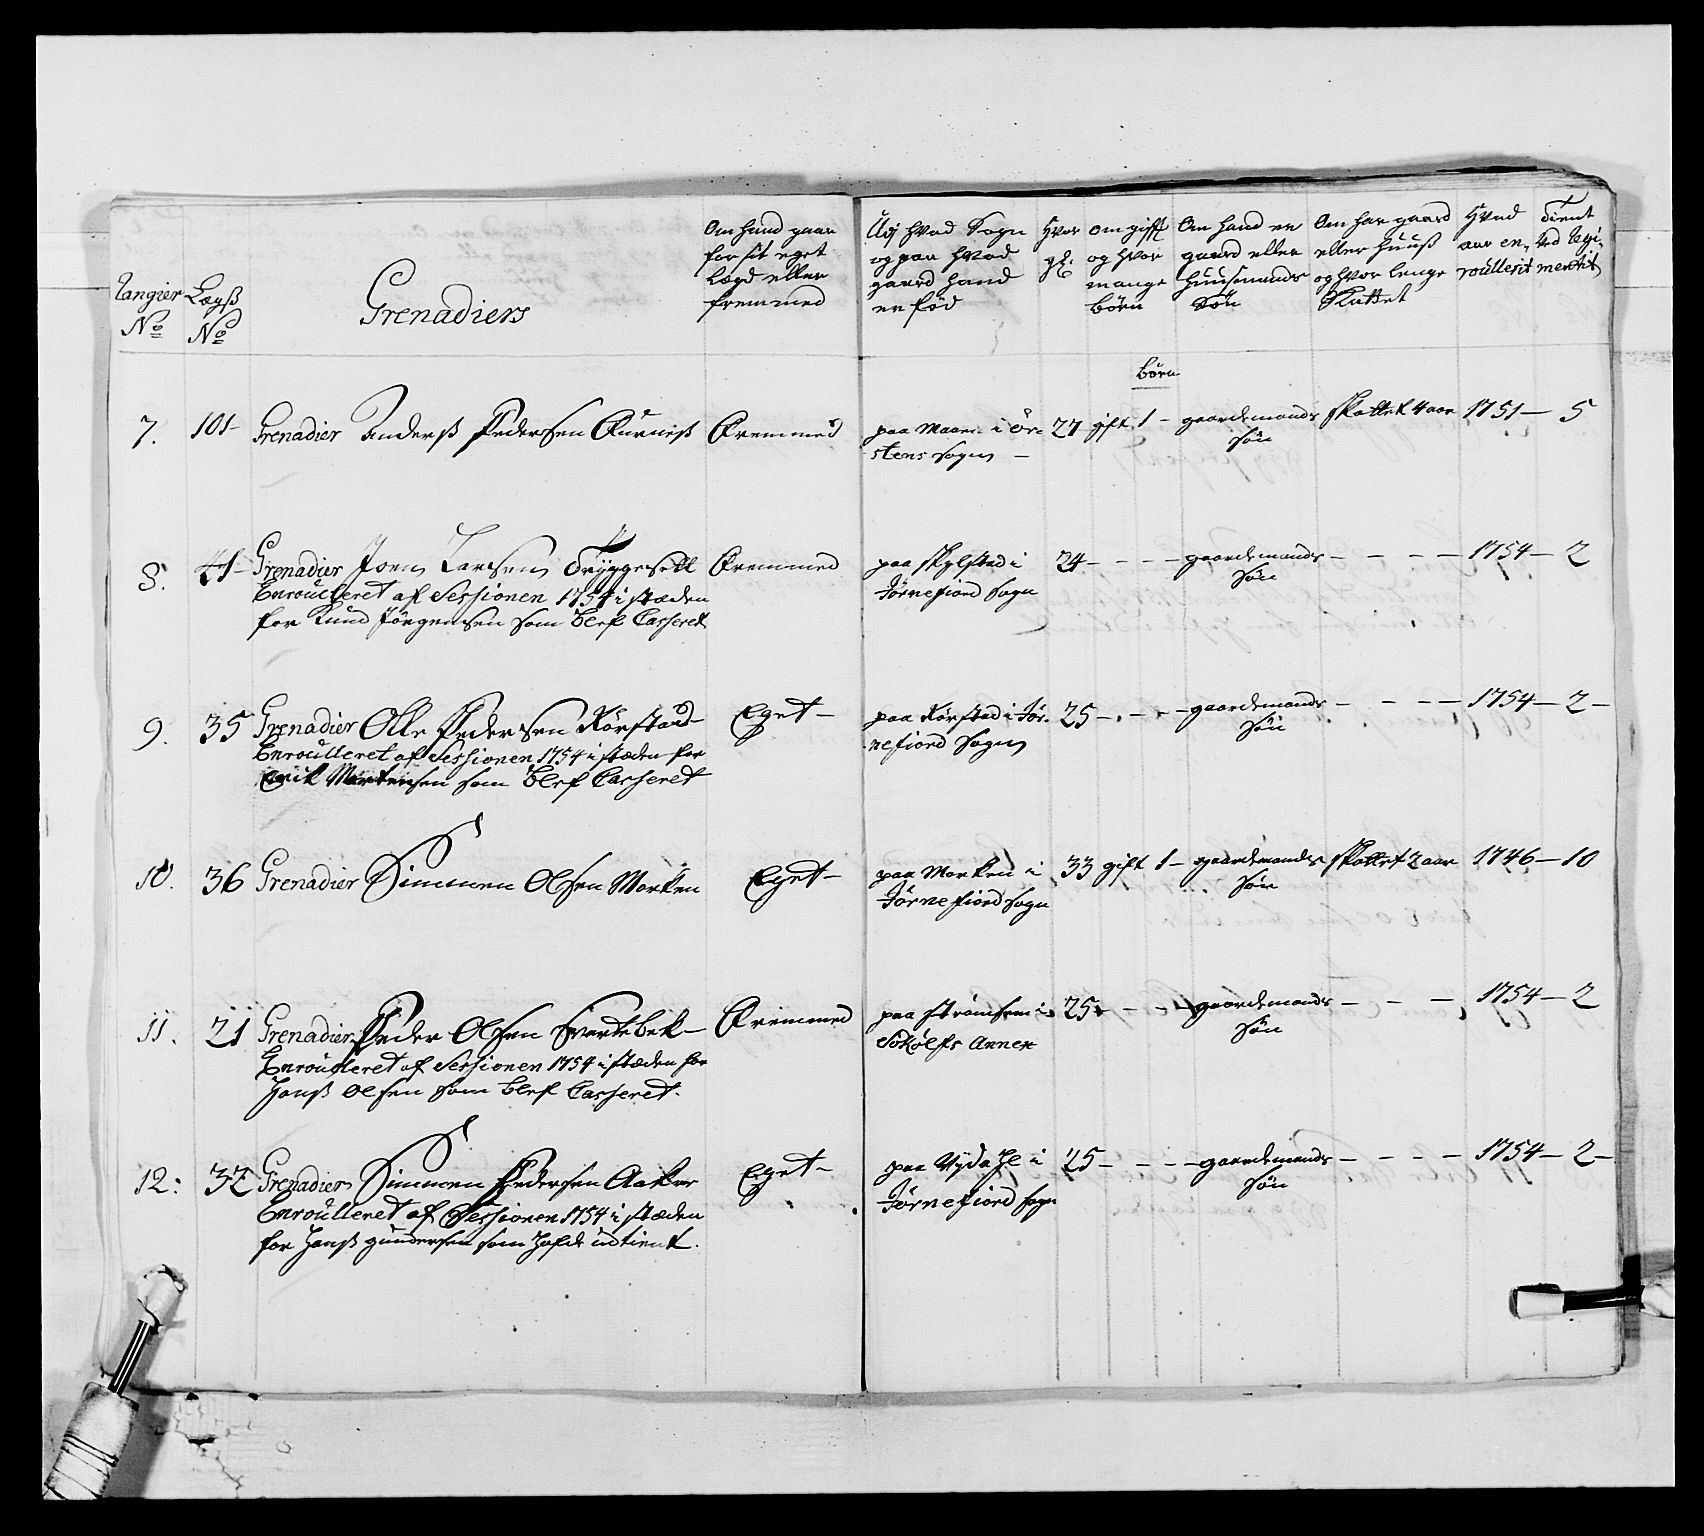 Rangier
No
Lægs
No
Grenadiers
Om hand gaar
for sit eget
Lægd eller
fremmed
Udj hvad Sogn
og paa hvad
gaard hand
er fød
Hvor
gl:
om gifft
og hvor
mange
børn
Om hand er
gaard eller
huusmands
Søn
Om har gaard
eller huuß
og hvor lenge
Skattet
Hvad
aar en-
roullerit
Tient
ved Regi-
mentit
børn
7. 101 Grenadier Anderß Pedersen Aurneß Fremmed
paa i Ør-
stens Sogn
27 gift 1 gaardemands
Søn
Skattet 4 aar 1751 5
8. 41 Grenadier Joen Larsen Tryggesett Fremmed
Enroulleret af Sessionen 1754 i stæden
for Knud Jörgensen som blef Casseret
paa Skylstad i
Jörnefiord Sogn
24 - - - gaardemands
Søn
- - - - 1754 2
9. 35 Grenadier Olle Pedersen Rörstad Eget
Enroulleret af Sessionen 1754 i stæden for
Erik Mortensen som blef Casseret
paa Rörstad i Jör-
nefiord Sogn
25 - - - gaardemands
Søn
- - - - 1754 2
10. 36 Grenadier Simmen Olsen Morken Eget
paa Morken i
Jörnefiord Sogn
33 gift 1 gaardemands
Søn
Skattet 2 aar 1746 10
11. 21 Grenadier Peder Olsen Svartebek Fremmed
Enroulleret af Sessionen 1754 i stæden for
Hanß Olsen som blef Casseret.
paa Strömsem i
Sökelfs Annex
25 - - - gaardemands
Søn
- - - 1754 2
12: 32 Grenadier Simmen Pedersen Aaker Eget
Enroulleret af Sessionen 1754 i stæden
for Hanß Gundersen som hafde udtient.
paa i
Jörnefiord Sogn
25 - - - gaardemands
Søn
- - - - 1754 2